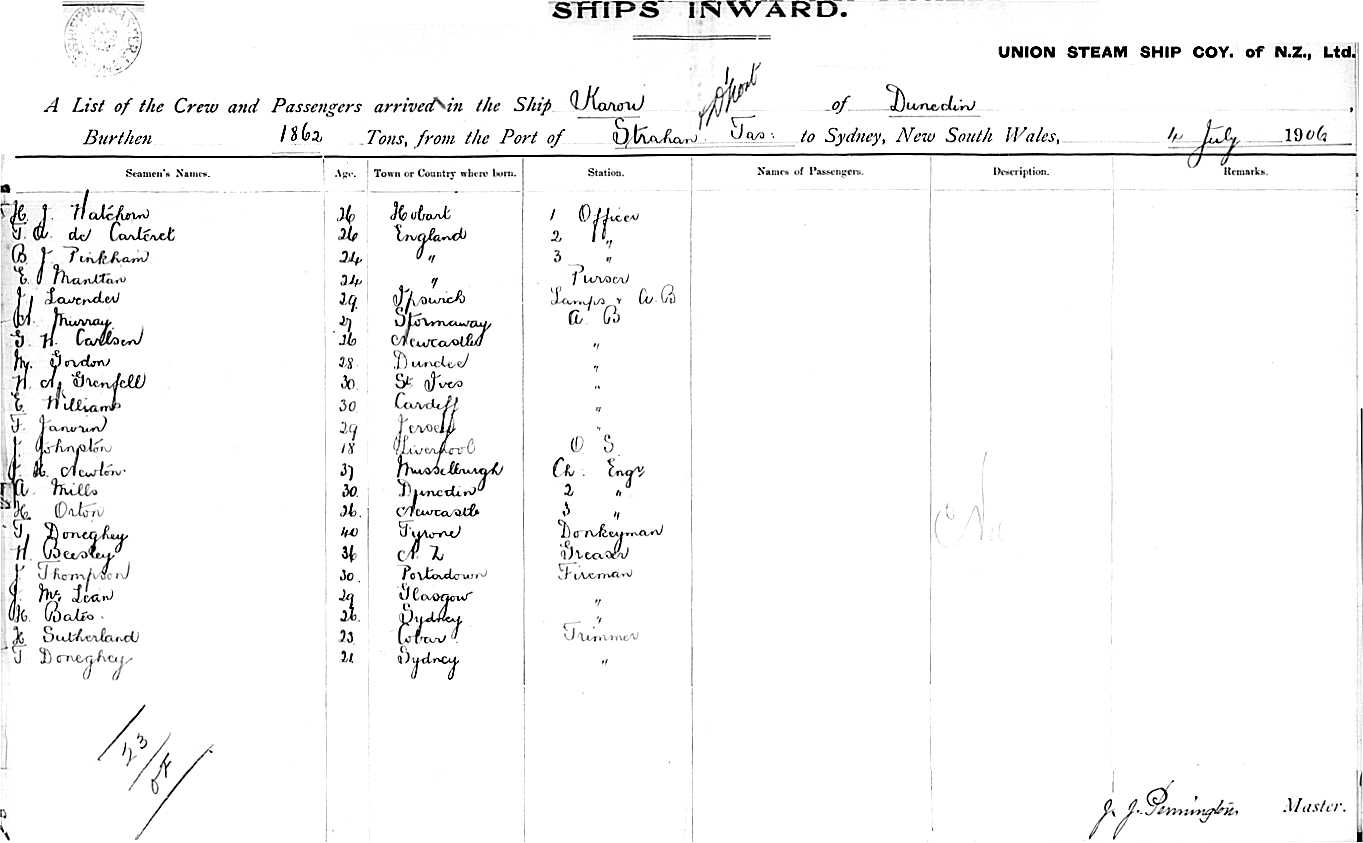 SHIPS INWARD.
UNION STEAM SHIP COY. of N.Z., Ltd.
A List of the Crew and Passengers arrived in the Ship Karori of Dunedin,
Burthen 1862 Tons, from the Port of Strahan Tas: to Sydney, New South Wales, 4 July 1906
Seamen's Names. Age. Town or Country where born. Station. Names of Passengers. Description. Remarks.
H. J. Hatchorn 26 Hobart 1 Officer
T. A. de Carteret 26 England 2 "
B J Pinkham 24 " 3 "
E. Manttan 24 " Purser
J. Lavender 29 Ipswich Lamps & A. B
A. Murray 27 Stornaway A B
G. H. Carlsen 26 Newcastle "
Wm. Gordon 28 Dundee "
H. A. Grenfell 30 St Ives "
E. Williams 30 Cardiff "
F. Janvrin 29 Jersey "
J. Johnston 18 Liverpool O S.
J. H. Newton. 37 Musselburgh Ch. Engr
A. Mills 30. Dunedin 2 "
H. Orton 26. Newcastle 3 "
T. Doneghey 40 Tyrone Donkeyman
H. Beesley 36 N. Z Greaser
J Thompson 30. Portadown Fireman
J. Mc Lean 29 Glasgow "
H. Bates. 26. Sydney "
H Sutherland 23 Cobar Trimmer
T Doneghey 21 Sydney "
23
J. J. Pennington Master.